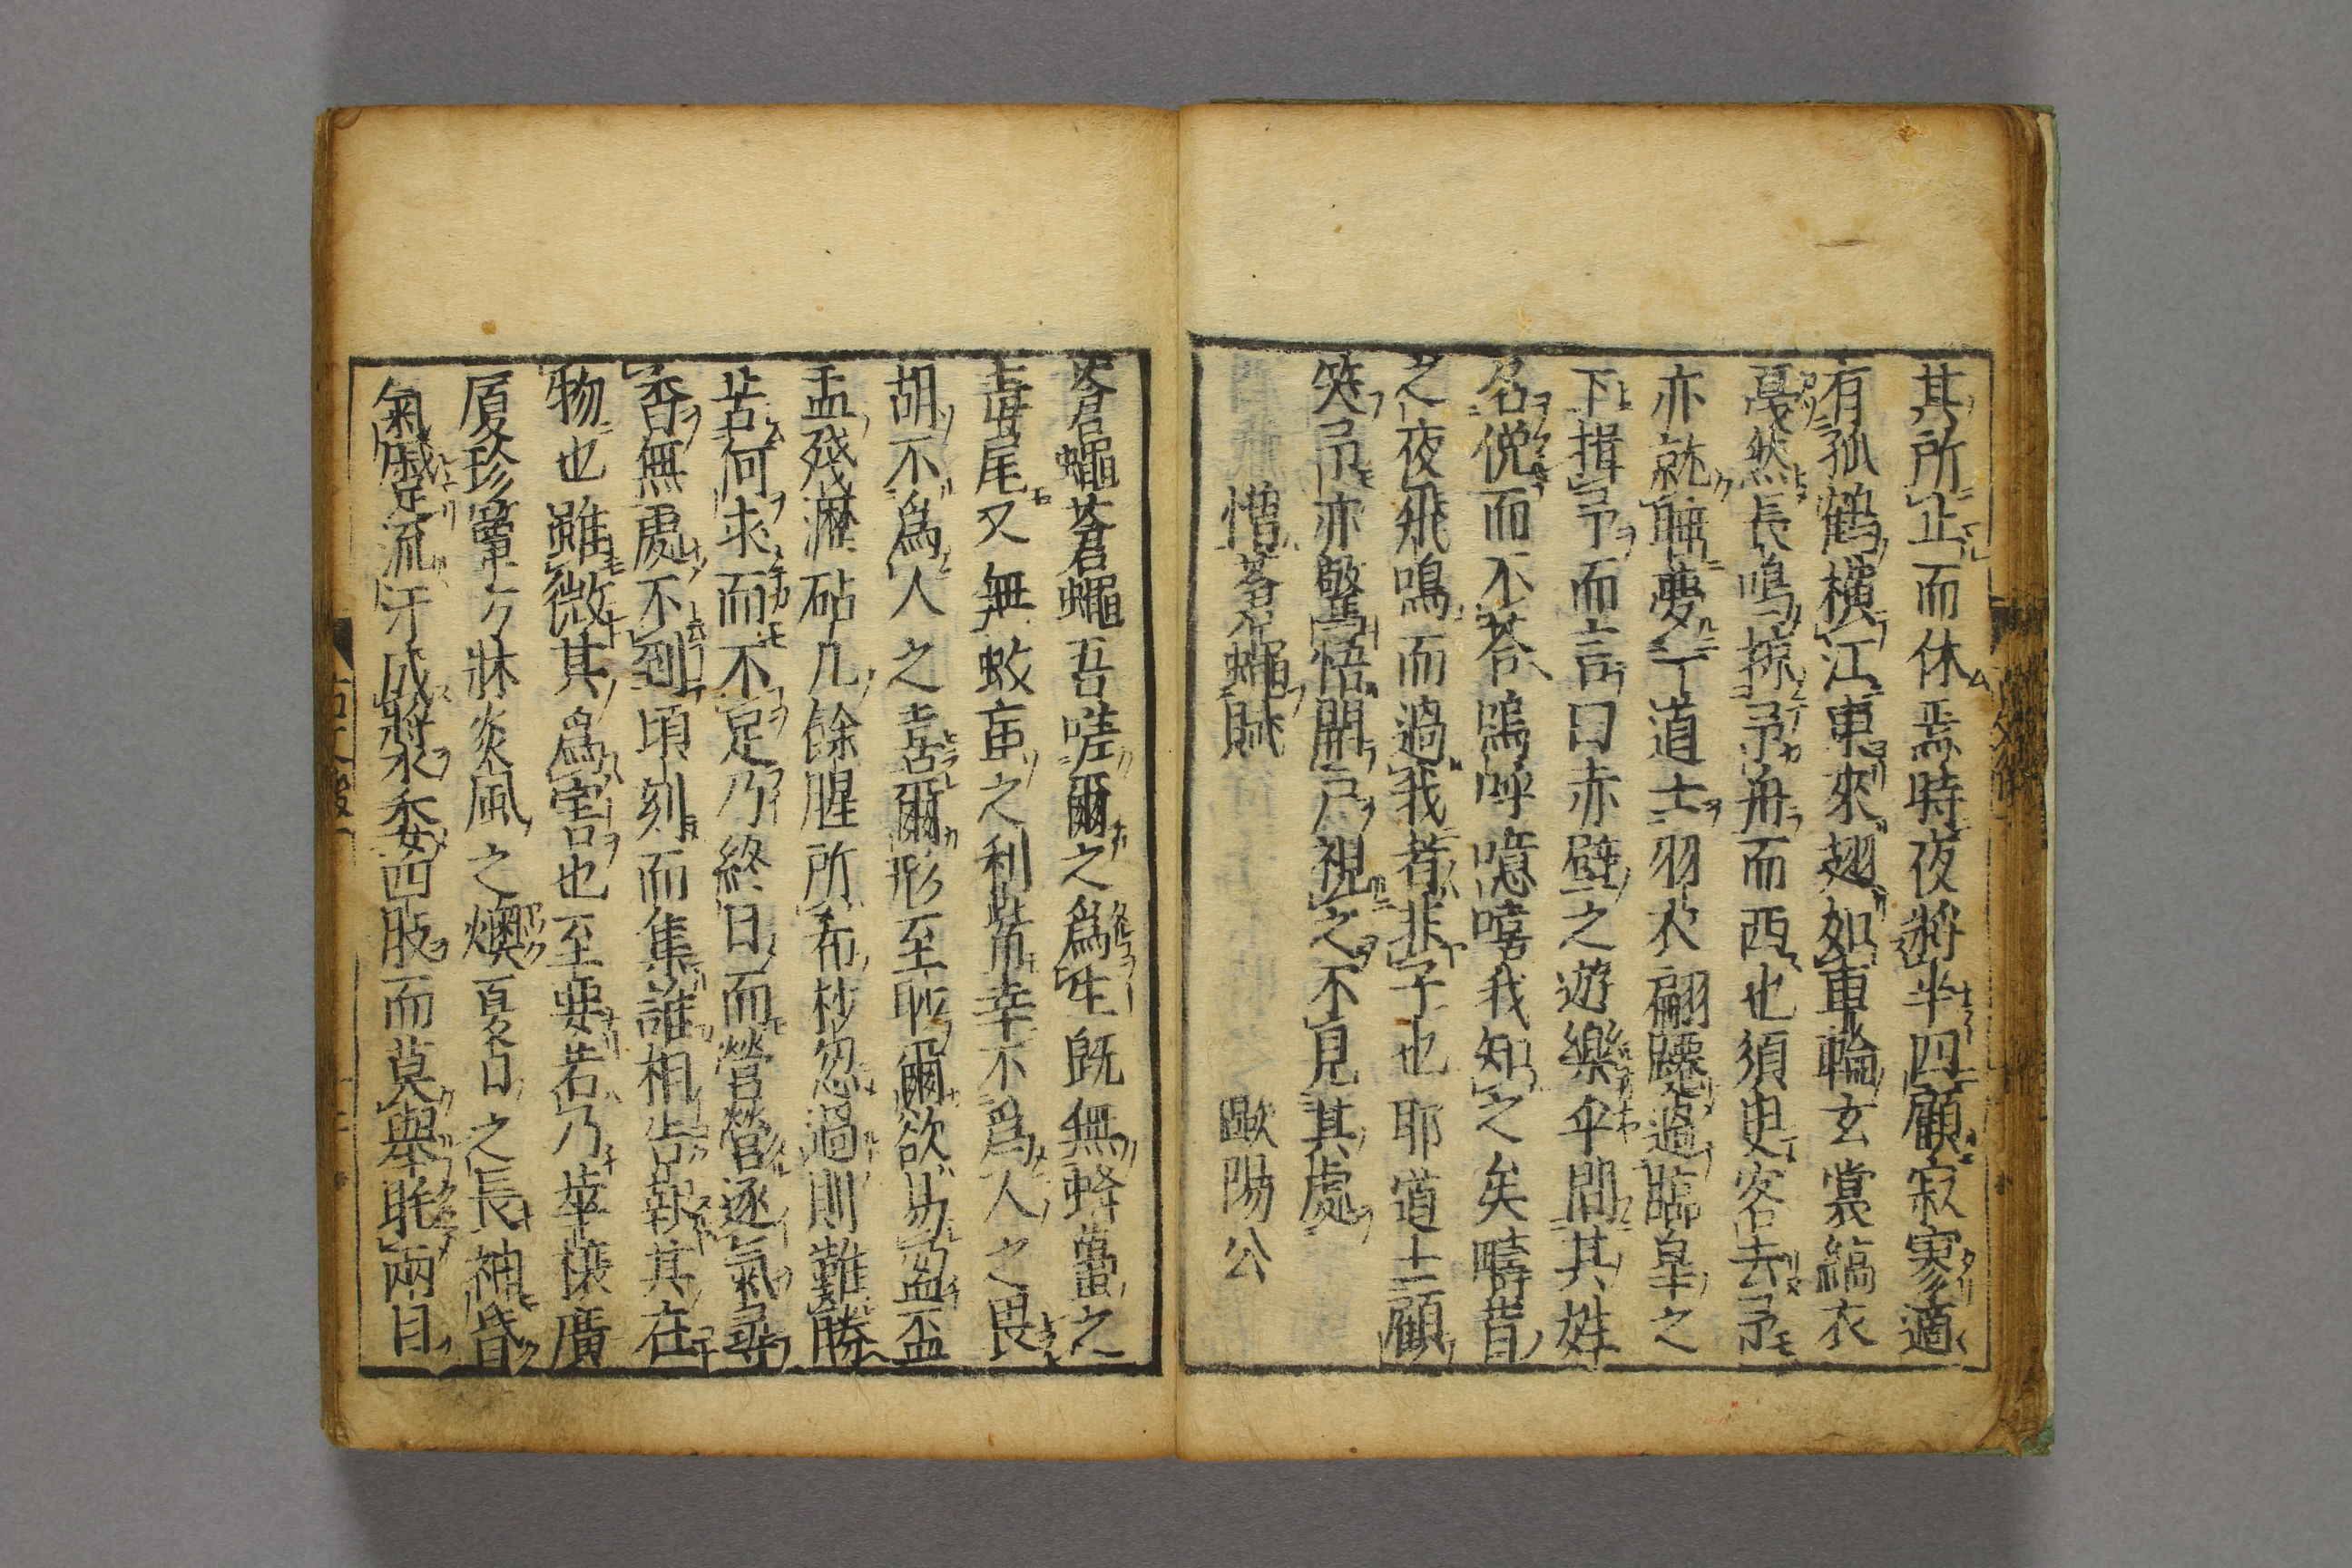 其所止而休焉時夜將半四顧寂寥適
有孤鶴橫江東來翅如車輪玄裳縞衣
戞然長鳴掠予舟而西也須臾客去予
亦就睡夢一道士羽衣翩躚過臨皐之
下揖予而言曰赤壁之遊樂乎問其姓
名俛而不荅嗚呼噫嘻我知之矣疇昔
之夜飛鳴而過我者非子也耶道士顧
笑予亦驚悟開戶視之不見其處
憎蒼蠅賦 歐陽公
蒼蠅蒼蠅吾嗟爾之爲生旣無蜂蠆之
毒尾又無蚊蝱之利觜幸不爲人之畏
胡不爲人之喜爾形至眇爾欲易盈盃
盂殘瀝砧几餘腥所希杪忽過則難勝
苦何求而不足乃終日而營營逐氣尋
香無處不到頃刻而集誰相告報其在
物也雖微其爲害也至要若乃華榱廣
厦珍簟方牀炎風之燠夏日之長神昏
氣蹙流汗成漿委四肢而莫舉眊兩目